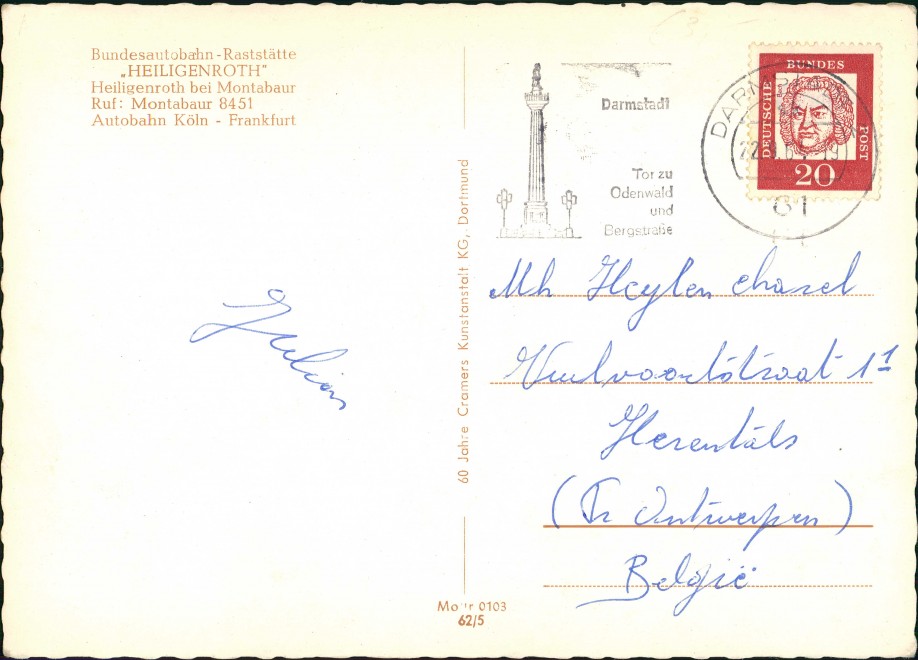 Bundesautobahn-Raststätte
„HEILIGENROTH"
Heiligenroth bei Montabaur
Ruf: Montabaur 8451
Autobahn Köln - Frankfurt
Julien
60 Jahre Cramers Kunstanstalt KG, Dortmund
Mo 0103
62/5
Darmstadt
Tor zu
Odenwald
und
Bergstraße
DEUTSCHE
BUNDES
POST
20
61
Mh Heylen
Herentals
(Antwerpen)
België